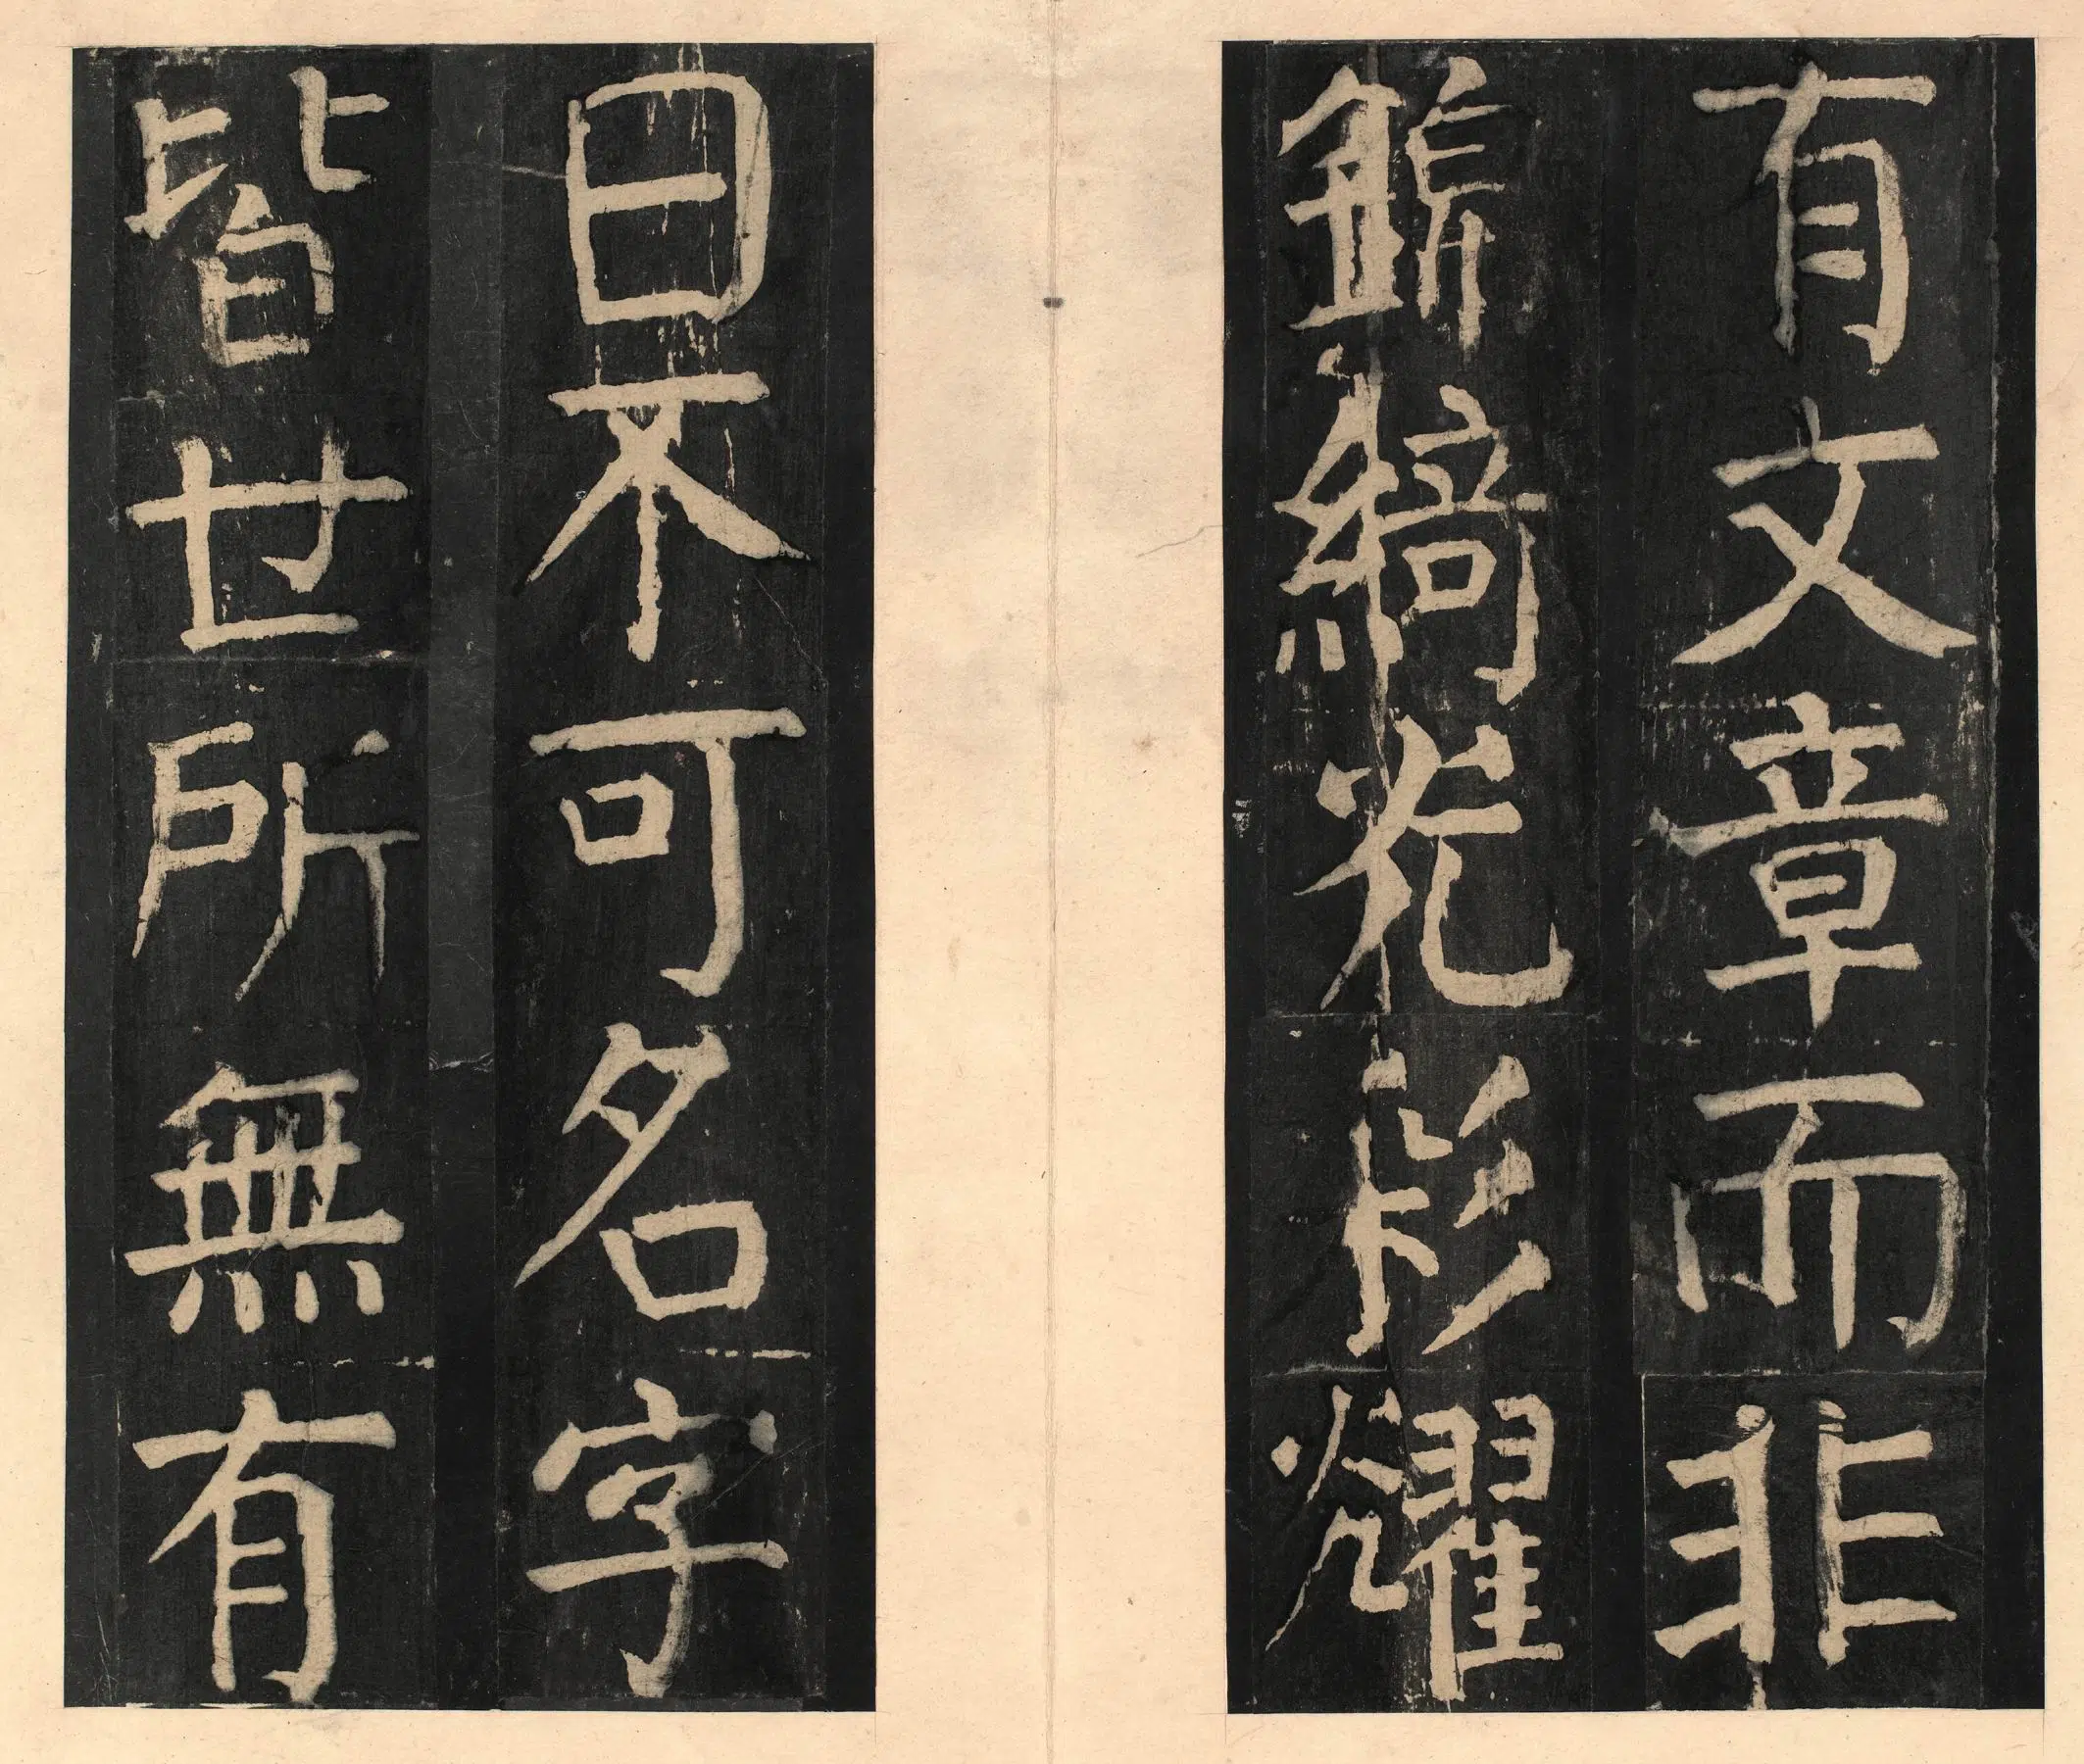 有文章而非
錦綺光彩耀
日不可名字
皆世所無有